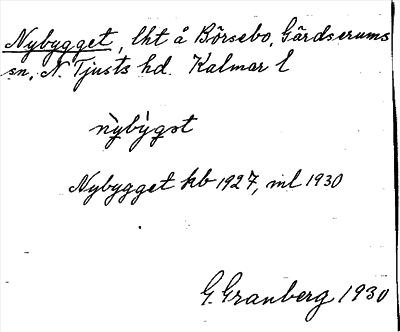 Nybygget, lht å Börsebo, Gärdserums
sn, N. Tjusts hd. Kalmar l
nỳbỳgət
Nybygget kb 1927, ml 1930
G. Granberg 1930